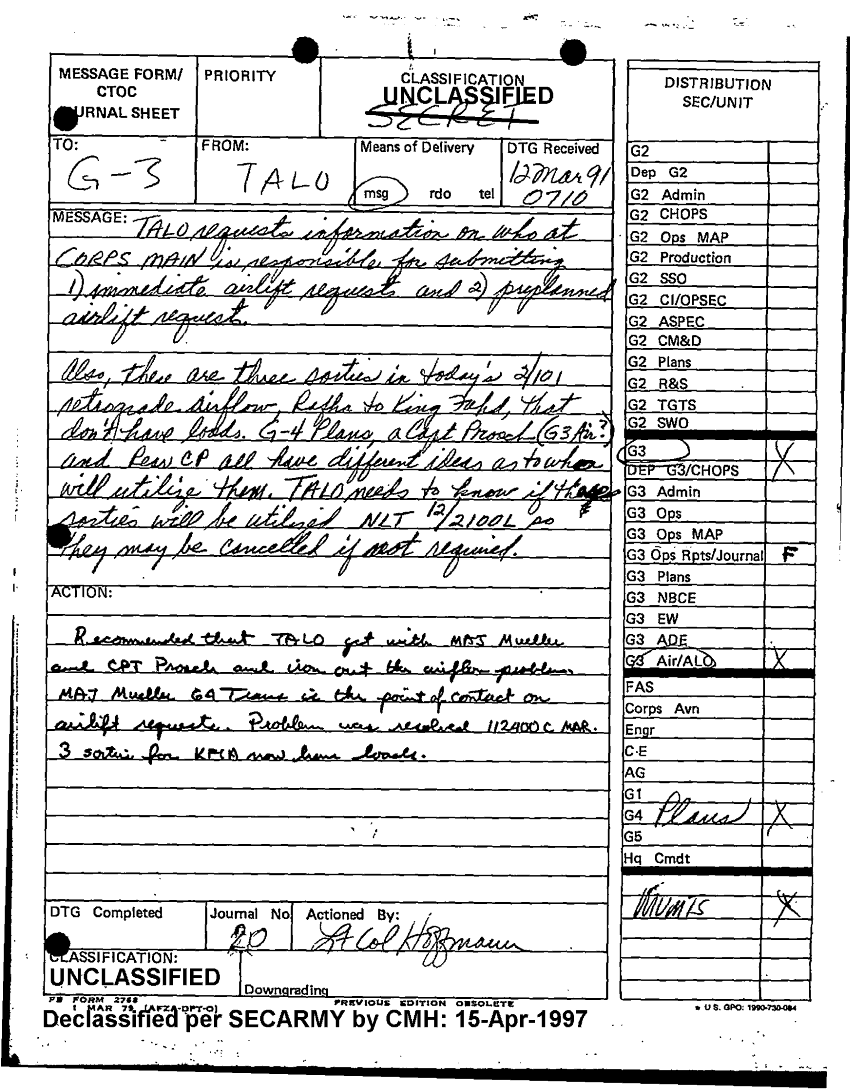 MESSAGE FORM/
CTOC
URNAL SHEET
PRIORITY
CLASSIFICATION
UNCLASSIFIED
SECRET
TO:
G-3
FROM:
TALO
Means of Delivery
msg rdo tel
DTG Received
12 Mar 91
0710
MESSAGE: TALO requests information on who at
CORPS MAIN is responsible for submitting
1) immediate airlift requests and 2) preplanned
airlift request.
Also, there are three sorties in today's 2/101
retrograde airflow, Rafha to King Fahd, that
don't have loads. G-4 Plans, a Capt Prosch (G3 Air?)
and Rear CP all have different ideas as to who
will utilize them. TALO needs to know if these
sorties will be utilized NLT 12/2100L so
they may be cancelled if not required.
ACTION:
Recommended that TALO get with MAJ Mueller
and CPT Prosch and iron out the airflow problem.
MAJ Mueller G4 Trans is the point of contact on
airlift requests. Problem was resolved 112400C MAR.
3 sorties for KFIA now have loads.
DTG Completed
Journal No
20
Actioned By:
Lt Col Hoffmann
CLASSIFICATION:
UNCLASSIFIED
Downgrading
FB FORM 2768
1 MAR 79 (AFZA-DPT-O)
PREVIOUS EDITION OBSOLETE
Declassified per SECARMY by CMH: 15-Apr-1997
DISTRIBUTION
SEC/UNIT
G2
Dep G2
G2 Admin
G2 CHOPS
G2 Ops MAP
G2 Production
G2 SSO
G2 CI/OPSEC
G2 ASPEC
G2 CM&D
G2 Plans
G2 R&S
G2 TGTS
G2 SWO
G3 X
DEP G3/CHOPS
G3 Admin
G3 Ops
G3 Ops MAP
G3 Ops Rpts/Journal F
G3 Plans
G3 NBCE
G3 EW
G3 ADE
G3 Air/ALO X
FAS
Corps Avn
Engr
C-E
AG
G1
G4 Plans X
G5
Hq Cmdt
X
* U.S. GPO: 1990-730-084